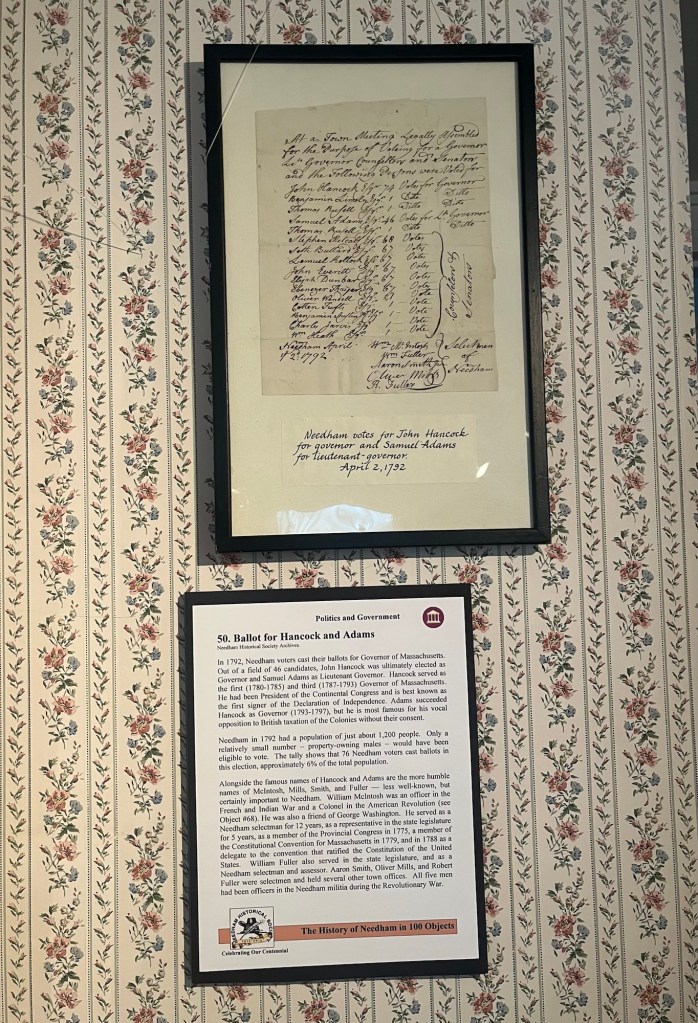 At a Town Meeting Legally Assembled
for the Purpose of Voteing for a Governor
Lt. Governor Counsellors and Senators
and the Following Persons were Voted for
John Hancock Esqr 74 Votes for Governor
Benjamin Lincoln Esqr 1 Ditto Ditto
Thomas Rusell Esqr 1 Ditto Ditto
Samuel Adams Esqr 46 Votes for Lt Governor
Thomas Rusell Esqr 1 Ditto
Stephen Metcalf Esqr 68 Votes
Seth Bullard Esqr 67 Votes
Lemuel Kollock Esqr 67 Votes
John Everitt Esqr 67 Votes
Elijah Dunbar Esqr 67 Votes
Ebenezer Thayer Esqr 67 Votes
Oliver Wendell Esqr 1 Vote
Cotton Tufts Esqr 1 Vote
Benjamin Esqr 1 Vote
Charls Jarvis Esqr 1 Vote
Wm Heath Esqr 1 Vote
Counsellors & Senators
Needham April
2d 1792
Wm McIntosh
Wm Fuller
Aaron Smith Jr
Oliver Mills
R. Fuller
Selectmen
of
Needham
Needham votes for John Hancock
for governor and Samuel Adams
for lieutenant-governor.
April 2, 1792
Politics and Government
50. Ballot for Hancock and Adams
Needham Historical Society Archives
In 1792, Needham voters cast their ballots for Governor of Massachusetts.
Out of a field of 46 candidates, John Hancock was ultimately elected as
Governor and Samuel Adams as Lieutenant Governor. Hancock served as
the first (1780-1785) and third (1787-1793) Governor of Massachusetts.
He had been President of the Continental Congress and is best known as
the first signer of the Declaration of Independence. Adams succeeded
Hancock as Governor (1793-1797), but he is most famous for his vocal
opposition to British taxation of the Colonies without their consent.
Needham in 1792 had a population of just about 1,200 people. Only a
relatively small number – property-owning males – would have been
eligible to vote. The tally shows that 76 Needham voters cast ballots in
this election, approximately 6% of the total population.
Alongside the famous names of Hancock and Adams are the more humble
names of McIntosh, Mills, Smith, and Fuller — less well-known, but
certainly important to Needham. William McIntosh was an officer in the
French and Indian War and a Colonel in the American Revolution (see
Object #68). He was also a friend of George Washington. He served as a
Needham selectman for 12 years, as a representative in the state legislature
for 5 years, as a member of the Provincial Congress in 1775, a member of
the Constitutional Convention for Massachusetts in 1779, and in 1788 as a
delegate to the convention that ratified the Constitution of the United
States. William Fuller also served in the state legislature, and as a
Needham selectman and assessor. Aaron Smith, Oliver Mills, and Robert
Fuller were selectmen and held several other town offices. All five men
had been officers in the Needham militia during the Revolutionary War.
NEEDHAM HISTORICAL SOCIETY
The History of Needham in 100 Objects
Celebrating Our Centennial